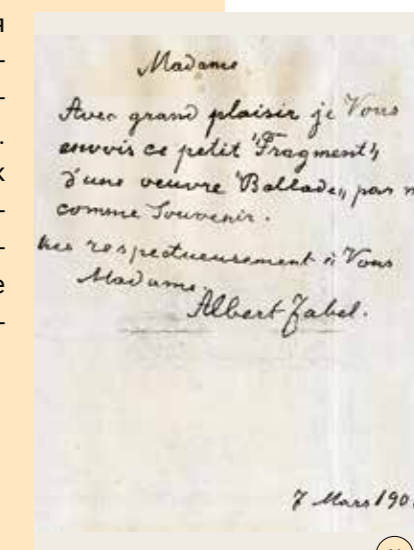 я
-
-
.
х
-
-
е
-
Madame
Avec grand plaisir je Vous
envois ce petit "Fragment"
d'une oeuvre "Ballade" par
comme Souvenir.
respectueusement à Vous
Madame.
Albert Zabel.
7 Mars 190